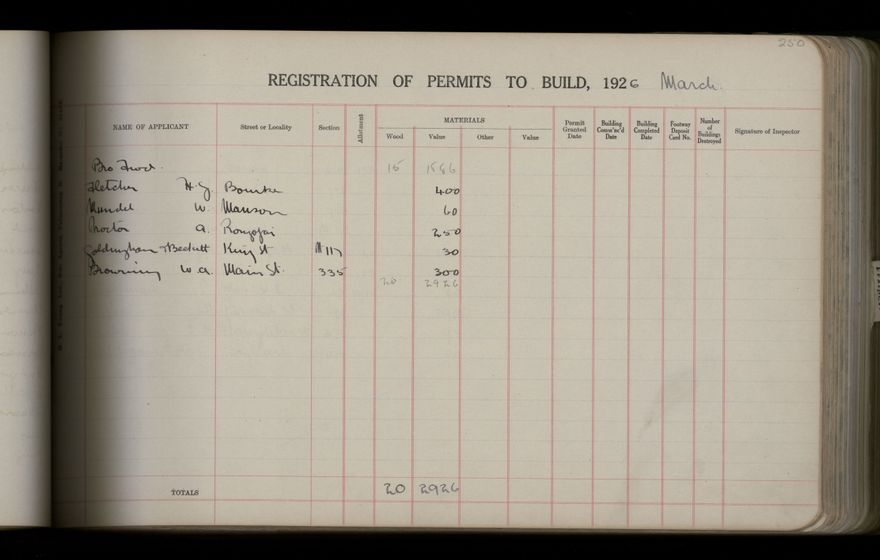 250
REGISTRATION OF PERMITS TO BUILD, 1926 March
NAME OF APPLICANT Street or Locality Section Allotment MATERIALS Wood Value Other Value Permit Granted Date Building Comm'nc'd Date Building Completed Date Footway Deposit Card No. Number of Buildings Destroyed Signature of Inspector
Bro Fwd. 15 1886
Fletcher H.J. Bourke 400
Mundel W. Manson 60
Proctor A. 250
Goldingham & Beckett King St M117 30
Browning W.A. Main St. 335 300
20 2926
TOTALS 20 2926